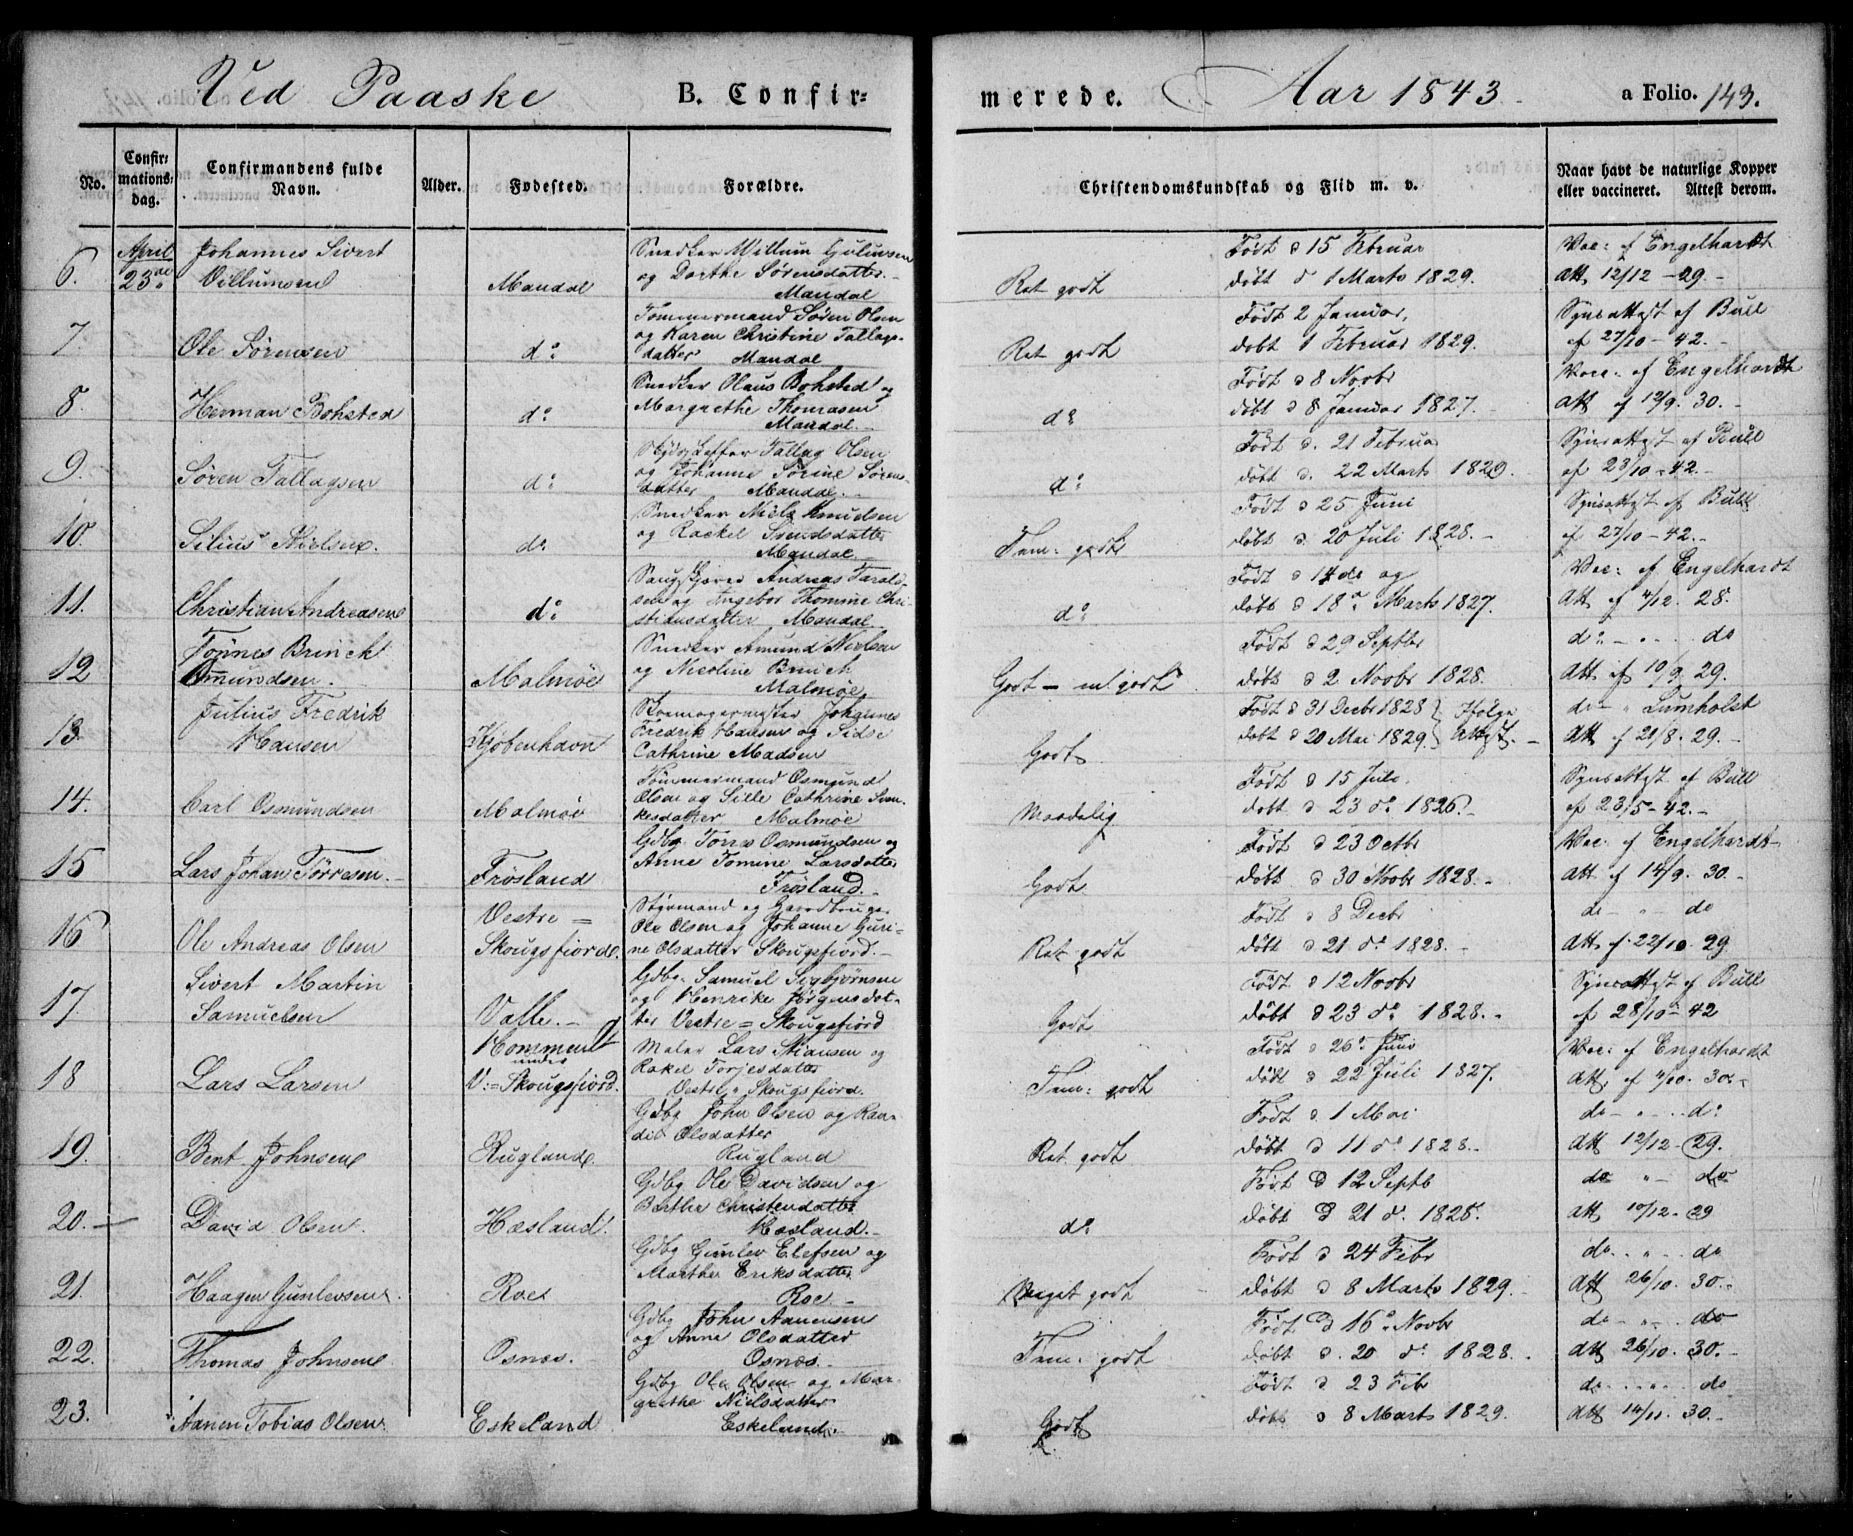 Ved Paaske B. Confir= merede. Aar 1843. a Folio. 143.
No. Confir=mations=dag. Confirmandens fulde Navn. Alder. Fødested. Forældre. Christendomskundskab og Flid m. v. Naar havt de naturlige Kopper eller vaccineret. Attest derom.
6. April Johannes Sivert Snedker Willum Født d 15 Februar Vac: af Engelhardt
23de Villumsen Mandal og Dorthe Sørensdatter. Ret godt døbt d 1 Marts 1829. Att. 12/12 - 29.
Mandal
Tømmermand Søren Olsen Født 2 Januar, Synsattest af Bull
7 Ole Sørensen do og Karen Christine Tallags- Ret godt døbt 1 Februar 1829. af 27/10 - 42.
datter Mandal
8. Snedker Olaus Bohsted og Født d 8 Novbr Vacc: af Engelhardt
Herman Bohsted do Margrethe Thomasen do døbt d 8 Januar 1827. Att af 12/9. 30.
Mandal.
9. Tallag Olsen Født d. 21 Februar Synsattest af Bull
Søren Tallagsen do og Johanne Sørine Sørens- do døbt d. 22 Marts 1829. af 23/10 - 42.
datter Mandal.
10. Snedker Niels Knudsen Født d 25 Juni Synsattest af Bull
Silius Nielsen. do og Rackel Svendsdatter Tem: godt døbt d. 20 Juli 1828. af 27/10 - 42.
Mandal
Andreas Tarald- Født d 14de og Vac: af Engelhardt
11. Christian Andreasen do sen og Ingebor Thomine Chri- do døbt d 18 Marts 1827. Att af 4/12. 28.
stiansdatter Mandal
Tønnes Brincht Snedker Amund Født d 29 Septbr do - " - do
12 Amundsen. Malmøe og Nicoline Brincht Godt - m godt døbt d 2 Novbr 1828. Att af 10/9 29.
Malmøe
Julius Fredrik Skomagermester Johannes Født d 31 Decbr 1828 } Ifølge do - " Lumholst
13. Hansen Kjøbenhavn Fredrik Hansen og Sidse Godt døbt d 20 Mai 1829 } Attest. Att af 21/8. 29.
Cathrine Madsen
14. Tømmermand Osmund Født d 15 Juli Synsattest af Bull
Carl Osmundsen Malmøe Olsen og Sille Cathrine Maadelig døbt d 23 do 1826. af 23/5 - 42.
datter Malmøe
15 Gdbg Torres Osmundsen og Født d 23 Octbr Vac: af Engelhardt
Lars Johan Tørresen. Frøsland Anne Tomine Larsdatter Godt døbt d 30 Novbr 1828. Att af 14/9. 30.
Frøsland.
16 Vestre = Styrmand og Født d 8 Decbr do - " - do
Ole Andreas Olsen Skougsfiord. Ole Olsen og Johanne Guri- Ret godt døbt d 21 do 1828. Att af 22/10. 29.
ne Olsdatter Skougsfiord.
17. Sivert Martin Gdbg. Samuel Sigbjørnsen Født d 12 Novbr Synsattest af Bull
Samuelsen Valle. og Henrike Jørgensdat- Godt døbt d 23 do 1828. af 28/10 - 42
ter Vestre = Skougsfiord
18 under Maler Lars og Født d 26 Juni Vac: af Engelhardt
Lars Larsen V:=Skougsfiord. Rakel Torjesdatter Tem: godt døbt d 22 Juli 1827. Att. af 4/10. 30.
Vestre Skougsfiord.
19. Gdbg John Olsen og Ran- Født d. 1 Mai do - " - do
Bent Johnsen Rugland. di Olsdatter Ret godt døbt d 11 do 1828. Att 12/12 - 29.
Rugland
20. Gdbg Ole Davidsen og Født d 12 Septb do " - do
David Olsen. Hæsland. Berthe Christensdatter do døbt d 21 do. 1828. Att 10/12 - 29
Hæsland.
21. Gdbg Gunlev Elefsen og Født d 24 Febr do - " - do
Haagen Gunlevsen. Roe Marthe Eriksdatter Meget godt døbt d 8 Marts 1829. Att 26/10. 30.
Roe.
22. Gdbg John Aanensen Født d 16 Novbr do - " - do
Thomas Johnsen Osnæs. og Anne Olsdatter Tem: godt døbt d. 20 do 1828. Att 26/10. 30.
Osnæs.
23. Gdbg Ole Olsen og Mar- Født d 23 Febr do - " - do
Aanen Tobias Olsen. Eskeland grethe Nielsdatter Godt døbt d 8 Marts 1829. Att 14/11. 30.
Eskeland.